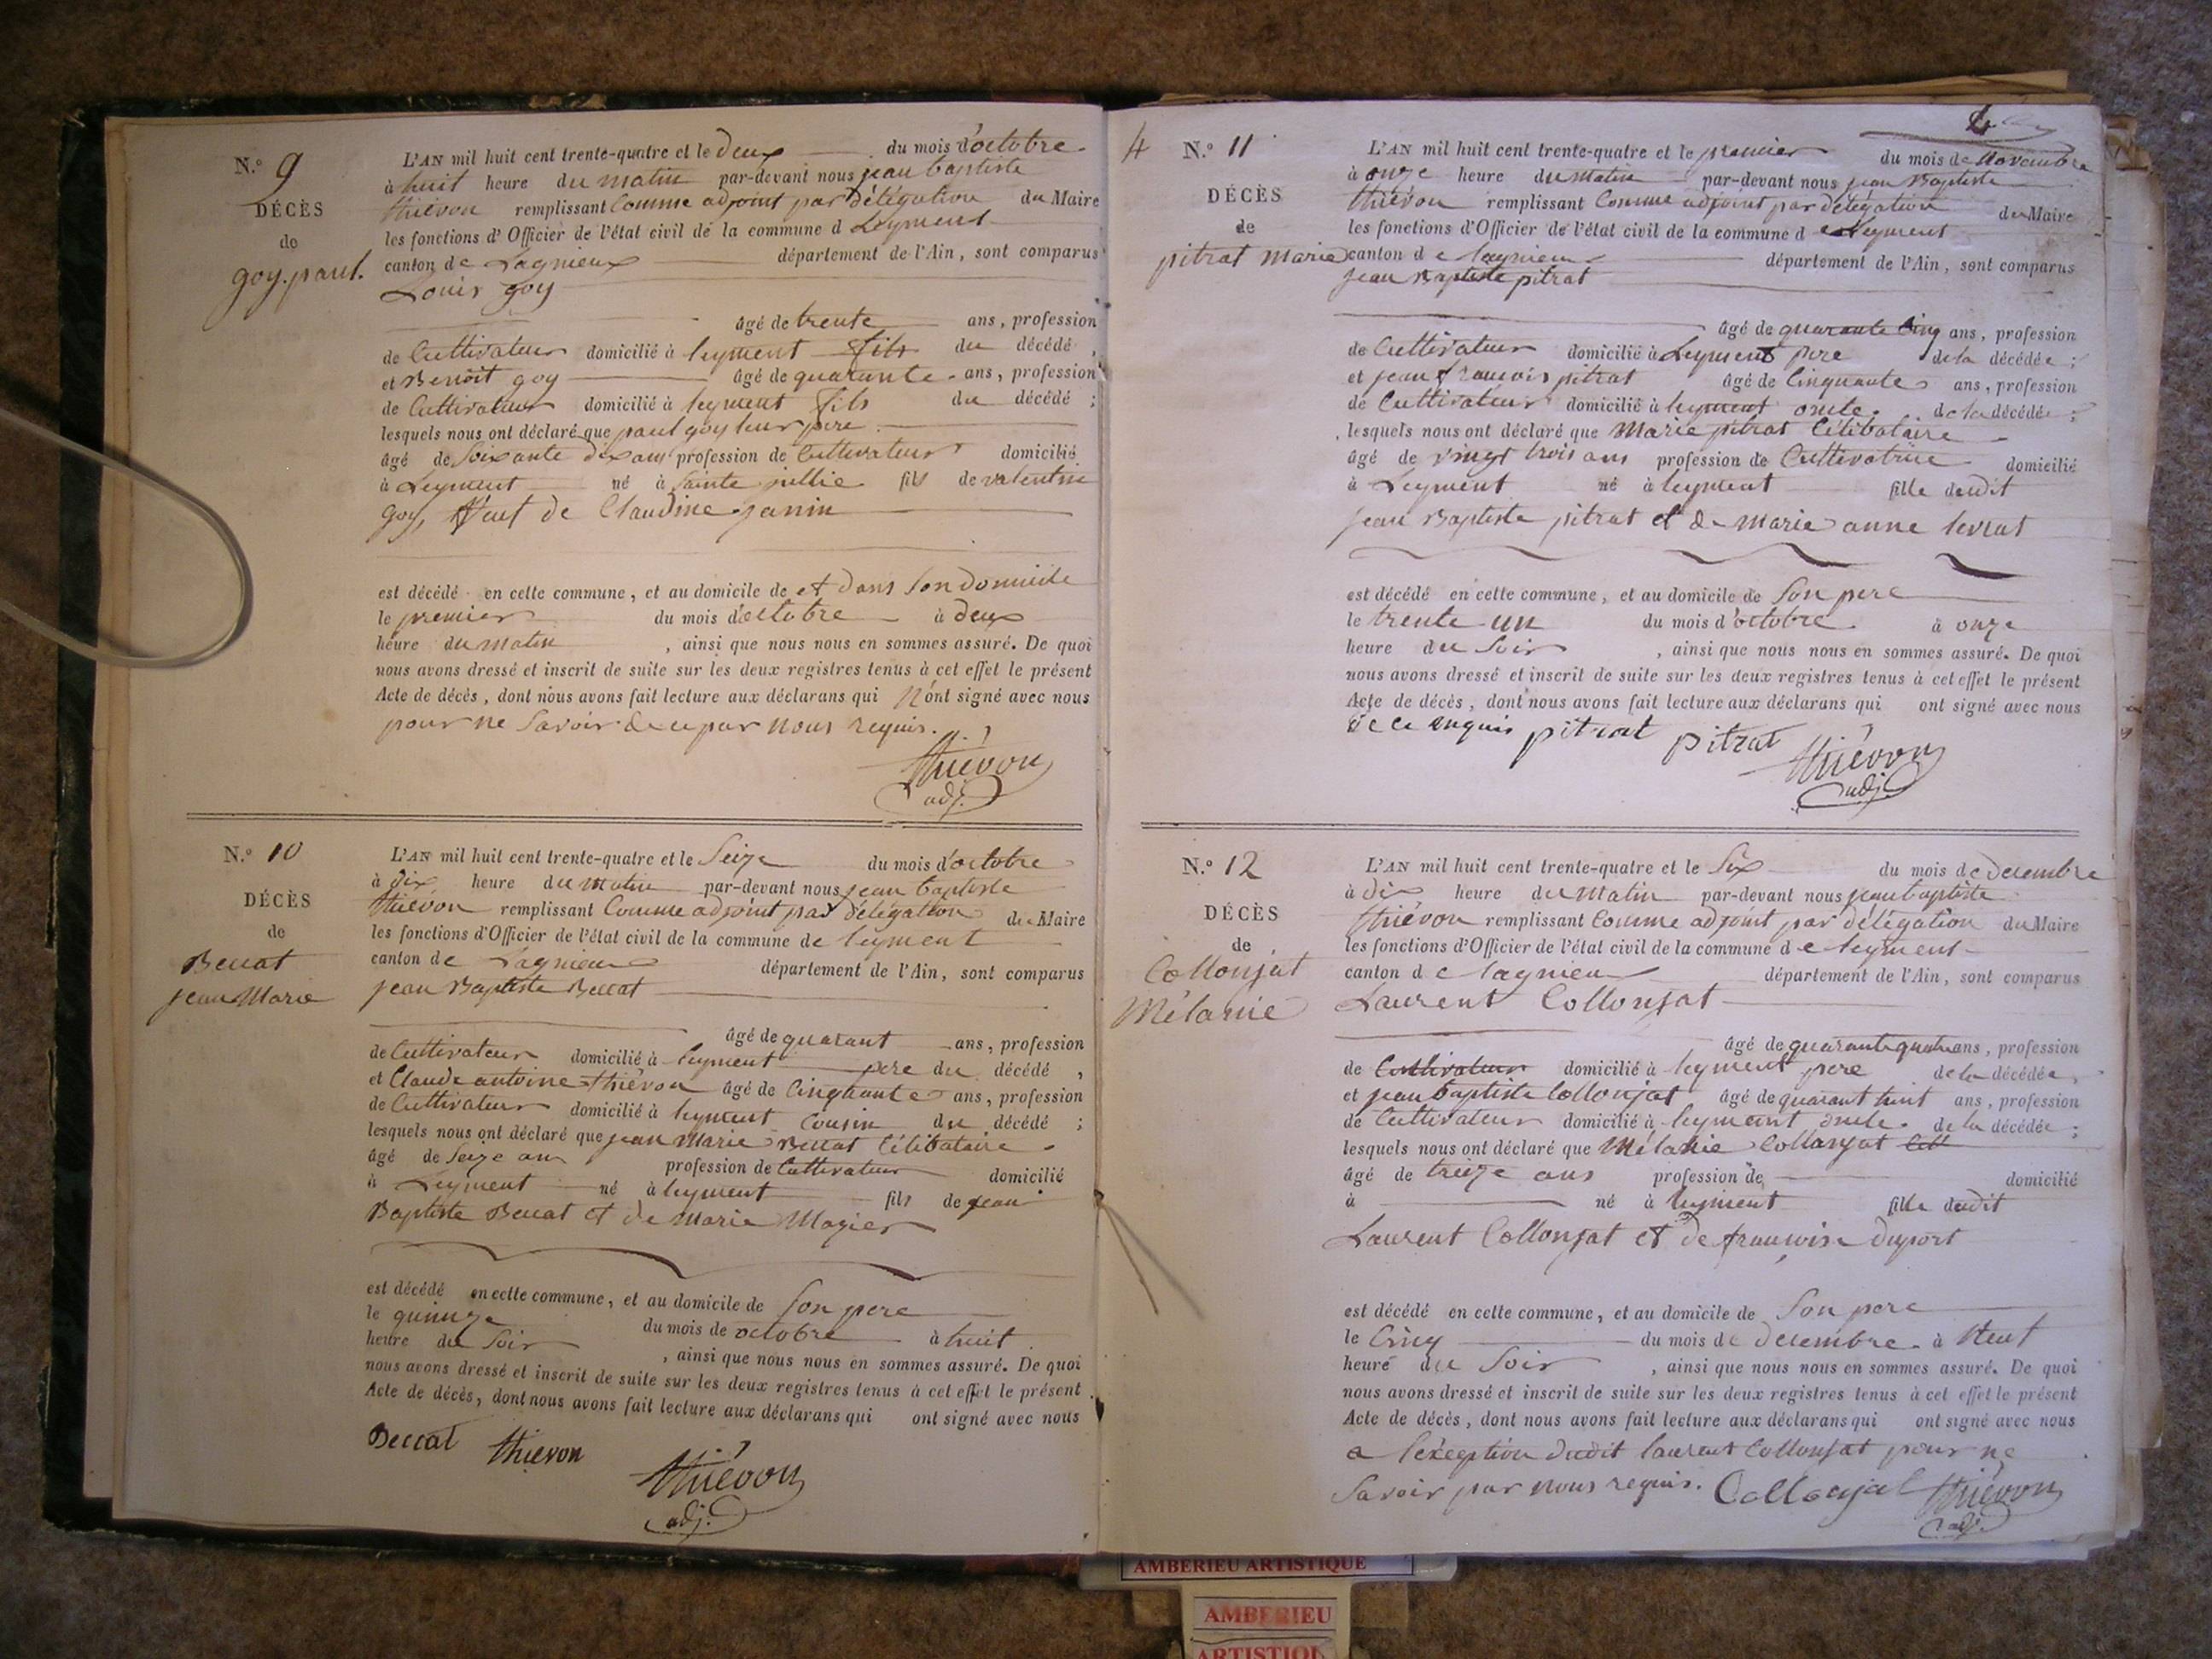 N.° 9
DÉCÈS
de
goy. paul.
L'AN mil huit cent trente-quatre et le deux du mois d'octobre
à huit heure du matin par-devant nous jean baptiste
thiévon remplissant Comme adjoint par délégation du Maire
les fonctions d'Officier de l'état civil de la commune d Leyment
canton de Lagnieux département de l'Ain, sont comparus
Louis goy
âgé de trente ans, profession
de Cultivateur domicilié à leyment fils du décédé,
et Benoit goy âgé de quarante ans, profession
de Cultivateur domicilié à leyment fils du décédé;
lesquels nous ont déclaré que paul goy leur pere
âgé de Soixante dix ans profession de Cultivateur domicilié
à Leyment né à Sainte jullie fils de valentin
goy, Veuf de Claudine janin
est décédé en cette commune, et au domicile de et dans Son domicile
le premier du mois d'octobre à deux
heure du matin, ainsi que nous nous en sommes assuré. De quoi
nous avons dressé et inscrit de suite sur les deux registres tenus à cet effet le présent
Acte de décès, dont nous avons fait lecture aux déclarans qui N'ont signé avec nous
pour ne Savoir de ce par nous requis.
thiévon
adj.
N.° 10
DÉCÈS
de
Beccat
jean Marie
L'AN mil huit cent trente-quatre et le Seize du mois d'octobre
à dix heure du matin par-devant nous jean baptiste
thiévon remplissant Comme adjoint par délégation du Maire
les fonctions d'Officier de l'état civil de la commune de leyment
canton de Lagnieu département de l'Ain, sont comparus
jean Baptiste Beccat
âgé de quarant ans, profession
de Cultivateur domicilié à leyment pere du décédé,
et Claude antoine thiévon âgé de Cinquante ans, profession
de Cultivateur domicilié à leyment Cousin du décédé;
lesquels nous ont déclaré que jean Marie Beccat Célibataire
âgé de Seize ans profession de Cultivateur domicilié
à Leyment né à leyment fils de jean
Baptiste Beccat et de Marie Magier
est décédé en cette commune, et au domicile de Son pere
le quinze du mois de octobre à huit
heure du Soir, ainsi que nous nous en sommes assuré. De quoi
nous avons dressé et inscrit de suite sur les deux registres tenus à cet effet le présent
Acte de décès, dont nous avons fait lecture aux déclarans qui ont signé avec nous
Beccat thievon
thiévon
adj.
4
N.° 11
DÉCÈS
de
pitrat marie
L'AN mil huit cent trente-quatre et le premier du mois de Novembre
à onze heure du matin par-devant nous jean Baptiste
thiévon remplissant Comme adjoint par délégation du Maire
les fonctions d'Officier de l'état civil de la commune d e Leyment
canton d e lagnieu département de l'Ain, sont comparus
jean Baptiste pitrat
âgé de quarante Cinq ans, profession
de Cultivateur domicilié à Leyment pere de la décédée;
et jean françois pitrat âgé de Cinquante ans, profession
de Cultivateur domicilié à leyment oncle de la décédée;
lesquels nous ont déclaré que Marie pitrat Célibataire
âgé de vingt trois ans profession de Cultivatrice domicilié
à Leyment né à leyment fille dudit
jean Baptiste pitrat et de marie anne levrat
est décédé en cette commune, et au domicile de Son pere
le trente-un du mois d'octobre à onze
heure du Soir, ainsi que nous nous en sommes assuré. De quoi
nous avons dressé et inscrit de suite sur les deux registres tenus à cet effet le présent
Acte de décès, dont nous avons fait lecture aux déclarans qui ont signé avec nous
de ce enquis pitrat pitrat thiévon
adj.
N.° 12
DÉCÈS
de
Collonjat
Mélanie
L'AN mil huit cent trente-quatre et le Six du mois de decembre
à dix heure du matin par-devant nous jean baptiste
thiévon remplissant Comme adjoint par délégation du Maire
les fonctions d'Officier de l'état civil de la commune d e leyment
canton d e lagnieu département de l'Ain, sont comparus
Laurent Collonjat
âgé de quarante quatre ans, profession
de Cultivateur domicilié à leyment pere de la décédée,
et jean baptiste Collonjat âgé de quarant huit ans, profession
de Cultivateur domicilié à leyment oncle de la décédée;
lesquels nous ont déclaré que Mélanie Collonjat Cell
âgé de treize ans profession de domicilié
à né à leyment fille dudit
Laurent Collonjat et de françoise duport
est décédé en cette commune, et au domicile de Son pere
le Cinq du mois de decembre à Neuf
heure du Soir, ainsi que nous nous en sommes assuré. De quoi
nous avons dressé et inscrit de suite sur les deux registres tenus à cet effet le présent
Acte de décès, dont nous avons fait lecture aux déclarans qui ont signé avec nous
a l'exception dudit laurent Collonjat pour ne
Savoir par nous requis. Collonjat thiévon
adj.
AMBERIEU ARTISTIQUE
AMBERIEU
ARTISTIQU